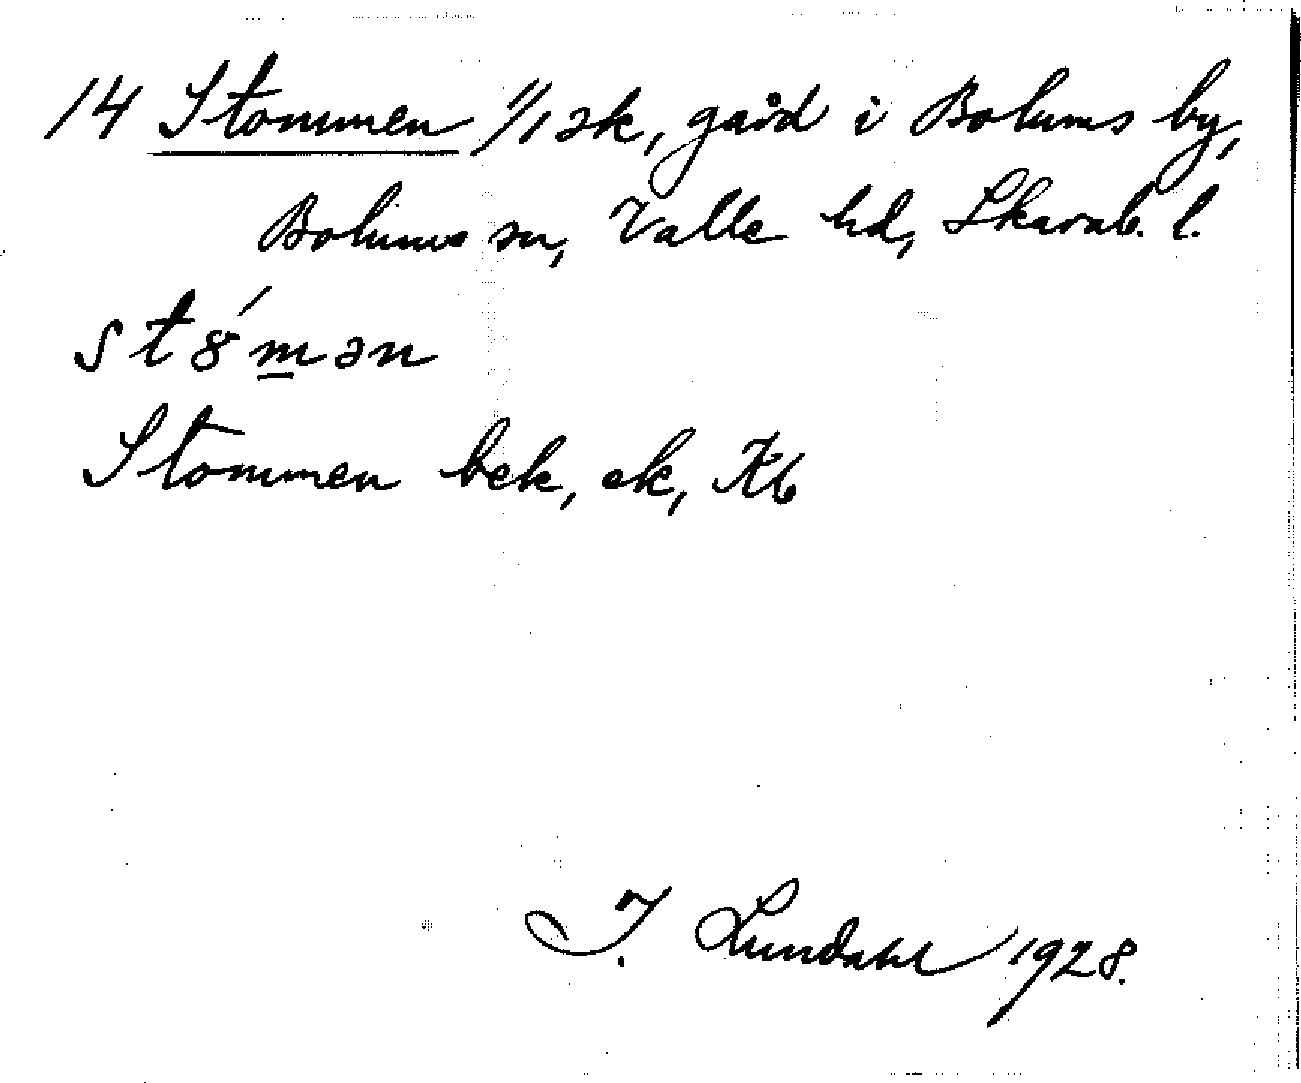 14 Stommen 1/1 ək, gård i Bolums by,
Bolums sn, Valle hd, Skarab. l.
st8́m̲ən
Stommen bek, ek, Kb
I. Lundahl 1928.